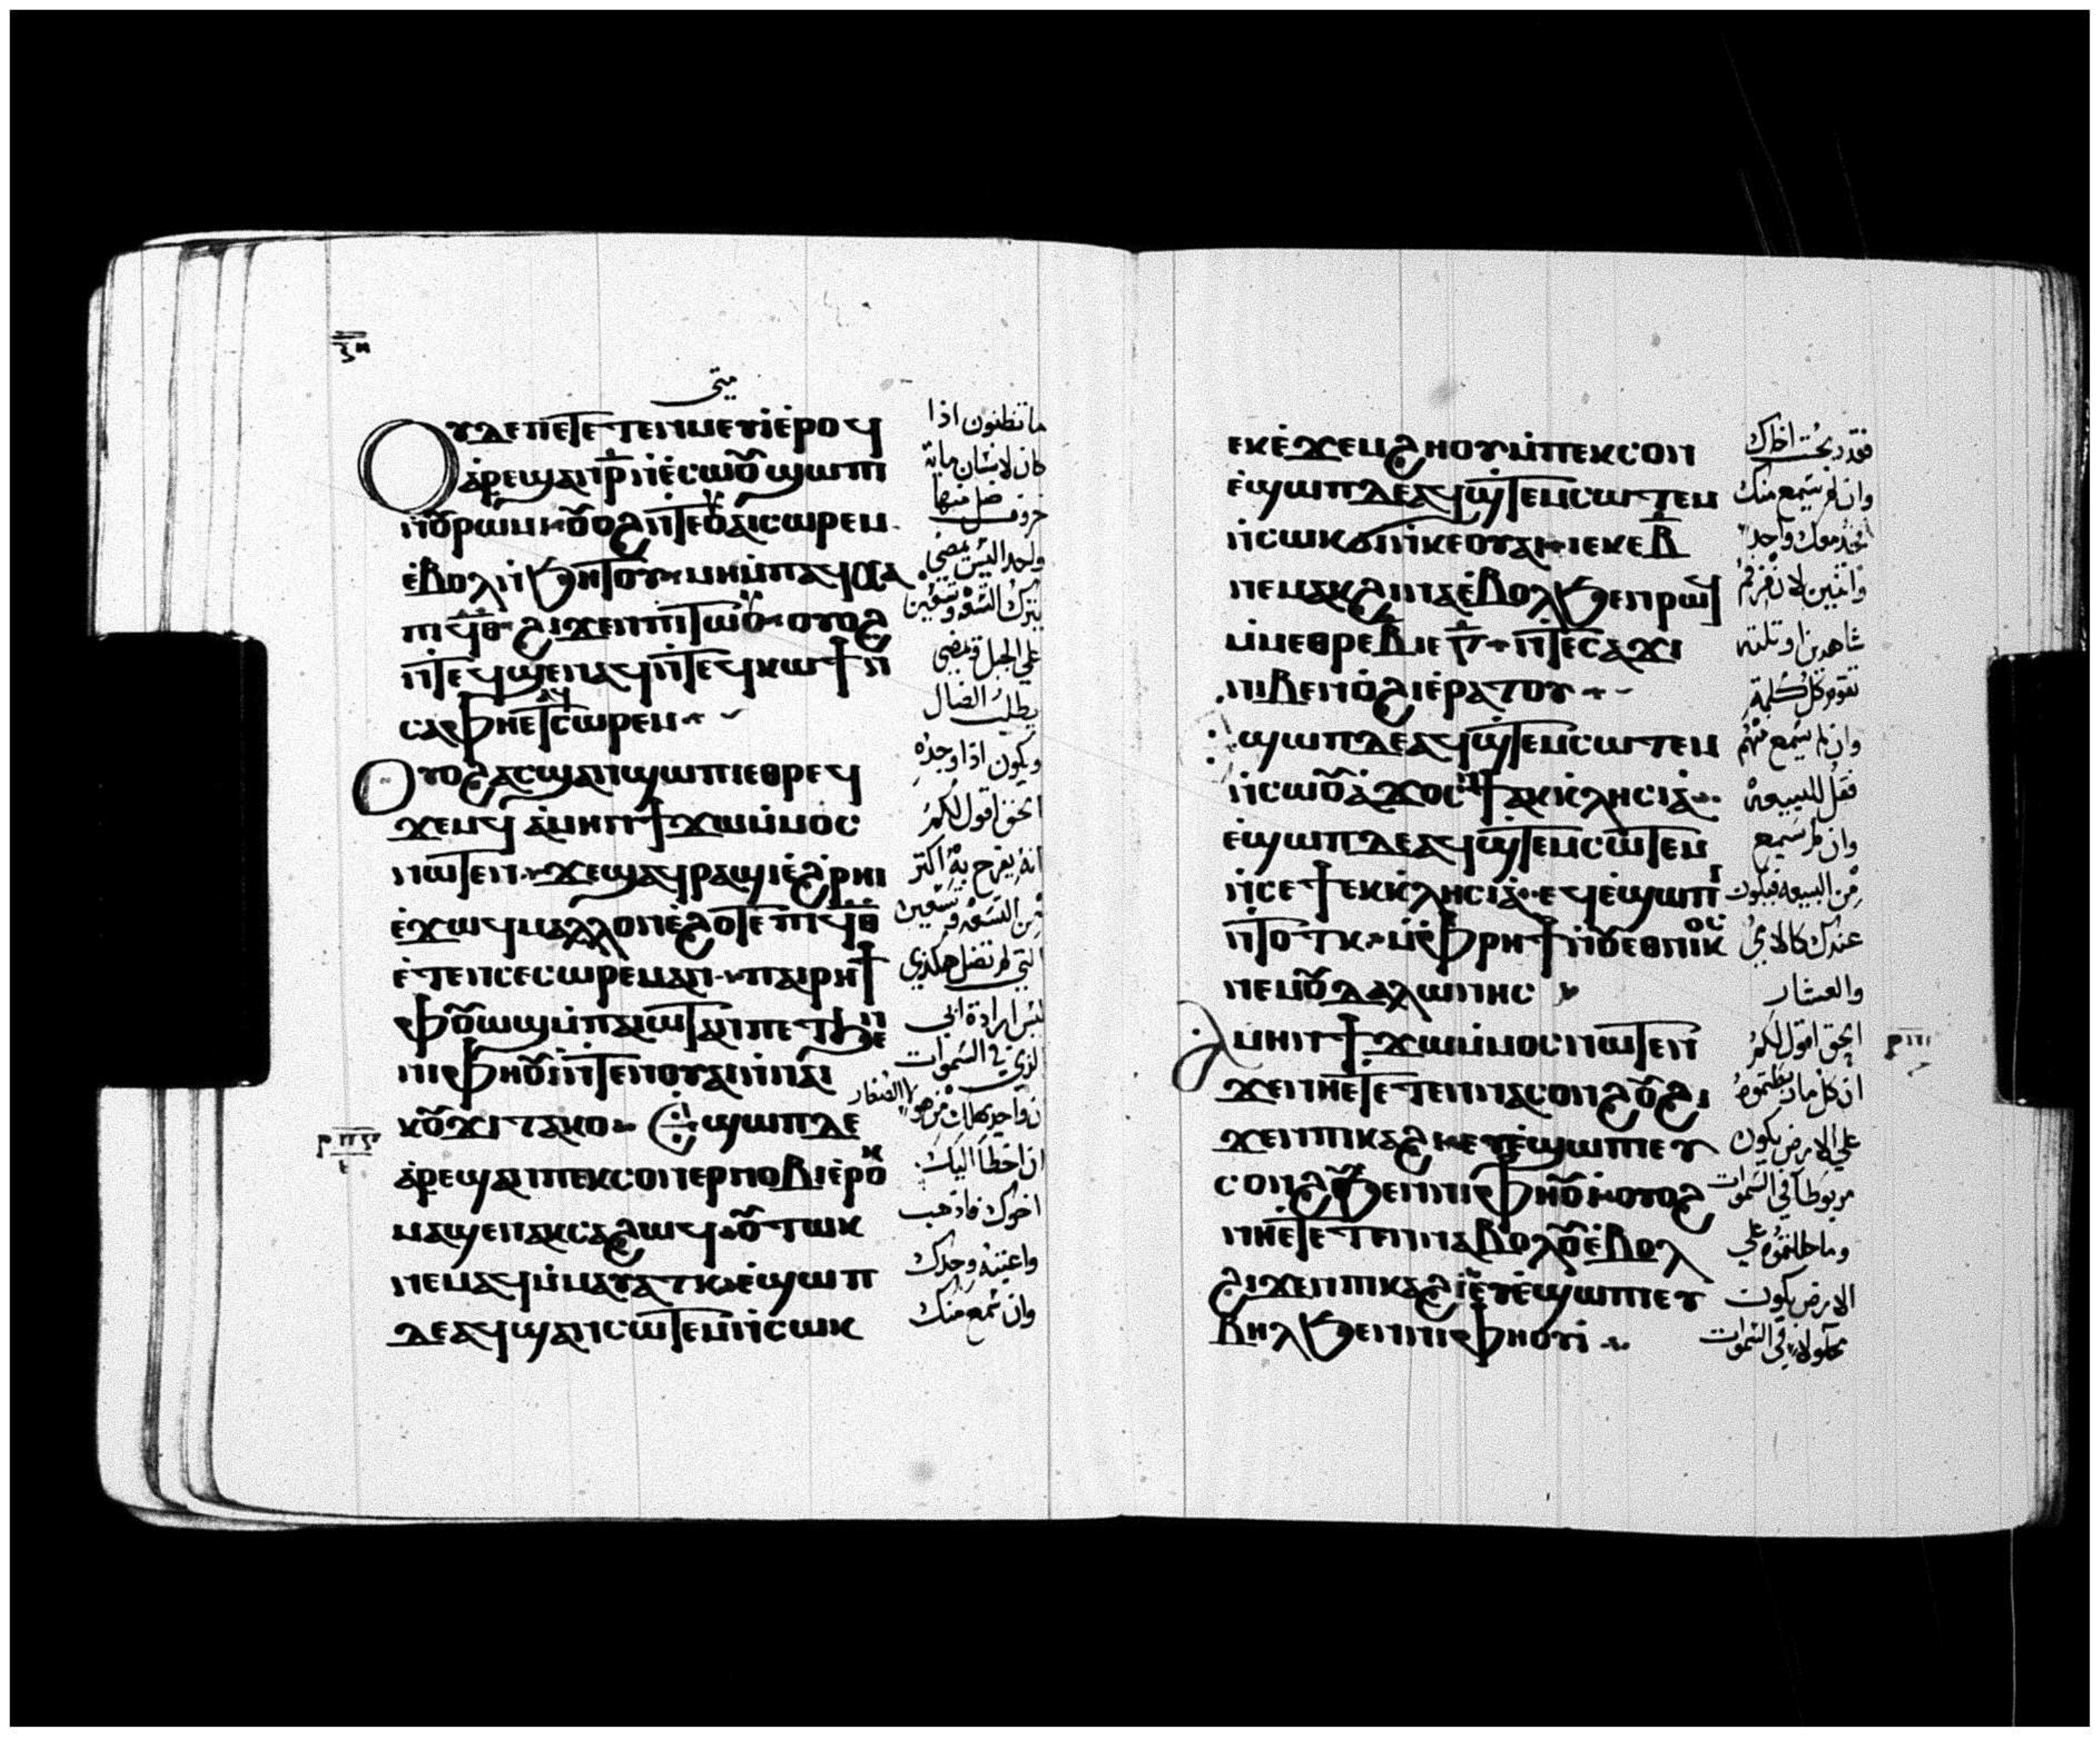 ⲝⲏ
متى
ⲟⲩⲇⲉⲡⲉⲧⲉⲧⲉⲛⲙⲉⲩⲓⲉ̇ⲣⲟϥ
ⲁ̇ⲣⲉϣⲁⲛⲣ̄ⲛ̇ⲉ̇ⲥⲱⲟⲩϣⲱⲡⲓ
ⲛ̇ⲟⲩⲣⲱⲙⲓ ⲟⲩⲟϩⲛ̇ⲧⲉⲟⲩⲁⲓⲥⲱⲣⲉⲙ
ⲉ̇ⲃⲟⲗⲛ̇ϧⲏⲧⲟⲩ ⲙⲏⲙ̇ⲡⲁϥⲭⲁ
ⲡⲓϥ̄ⲑ̄ ϩⲓϫⲉⲛⲡⲓⲧⲱⲟⲩ ⲟⲩⲟϩ
ⲛ̇ⲧⲉϥϣⲉⲛⲁϥⲛ̇ⲧⲉϥⲕⲱϯⲛ̇
ⲥⲁⲫⲏⲉⲧⲁϥⲥⲱⲣⲉⲙ
ⲟⲩⲟϩⲁⲥϣⲁⲛϣⲱⲡⲓⲉⲑⲣⲉϥ
ϫⲉⲙϥ ⲁ̇ⲙⲏⲛϯϫⲱⲙ̇ⲙⲟⲥ
ⲛⲱⲧⲉⲛ ϫⲉϣⲁϥⲣⲁϣⲓⲉ̇ϩⲣⲏⲓ
ⲉ̇ϫⲱϥⲙⲁⲗⲗⲟⲛⲉ̇ϩⲟⲧⲉⲡⲓϥ̄ⲑ̄
ⲉ̇ⲧⲉⲙⲡⲉⲥⲱⲣⲉⲙⲁⲛ ⲡⲁⲓⲣⲏϯ
ⲫⲟⲩⲱϣⲙ̇ⲡⲁⲓⲱⲧⲁⲛⲡⲉⲧϧⲉⲛ
ⲛⲓⲫⲏⲟⲩⲓⲛ̇ⲧⲉⲛⲟⲩⲁⲓⲛ̇ⲛⲁⲓ
ⲕⲟⲩϫⲓⲧⲁⲕⲟ ⲉ̇ϣⲱⲡⲇⲉ
ⲁ̇ⲣⲉϣⲁⲛⲡⲉⲕⲥⲟⲛⲉⲣⲛⲟⲃⲓⲉ̇ⲣⲟⲕ
ⲙⲁϣⲉⲛⲁⲕⲥⲁϩⲱϥ ⲟⲩⲧⲱⲕ
ⲛⲉⲙⲁϥⲙ̇ⲙⲁⲩⲁⲧⲕ ⲉ̇ϣⲱⲡ
ⲇⲉⲁϥϣⲁⲛⲥⲱⲧⲉⲙⲛ̇ⲥⲱⲕ
ما تظنون اذا
كان لانسان ماية
خروف ضل منها
واحد اليس يمضى
يترك التسعة وتسعين
على الجبل ويمضى
يطلب الضال
ويكون اذا وجده
الحق اقول لكم
انه يفرح به اكثر
من التسعة وتسعين
التي لم تضل هكذى
ليس ارادة ابى
الذي في السموات
ان واحد يهلك من هولا الصغار
ان اخطا اليك
اخوك فاذهب
واعتبه وحدك
وان سمع منك
ⲉⲕⲉ̇ϫⲉⲙϩⲏⲟⲩⲙ̇ⲡⲉⲕⲥⲟⲛ
ⲉ̇ϣⲱⲡⲇⲉⲁϥϣⲧⲉⲙⲥⲱⲧⲉⲙ
ⲛ̇ⲥⲱⲕϭⲓⲛ̇ⲕⲉⲟⲩⲁⲓ ⲓⲉⲕⲉⲃ̄
ⲛⲉⲙⲁⲕϩⲓⲛⲁⲉ̇ⲃⲟⲗϧⲉⲛⲣⲱϥ
ⲙ̇ⲙⲉⲑⲣⲉⲃ̄ⲓⲉⲅ̄ ⲛ̇ⲧⲉⲥⲁϫⲓ
ⲛⲓⲃⲉⲛⲟ̇ϩⲓⲉ̇ⲣⲁⲧⲟⲩ
ϣⲱⲡⲇⲉⲁϥϣⲧⲉⲙⲥⲱⲧⲉⲙ
ⲛ̇ⲥⲱⲟⲩⲁ̇ϫⲟⲥⲛ̇ϯⲁⲕⲕⲗⲏⲥⲓⲁ̇
ⲉ̇ϣⲱⲡⲇⲉⲁϥϣⲧⲉⲙⲥⲱⲧⲉⲙ
ⲛ̇ⲥⲉϯⲉⲕⲕⲗⲏⲥⲓⲁ̇ ⲉϥⲉ̇ϣⲱⲡⲓ
ⲛ̇ⲧⲟⲧⲕ ⲙ̇ⲫⲣⲏϯⲛ̇ⲟⲩⲉⲑⲛⲓⲕⲟⲥ
ⲛⲉⲙⲟⲩⲇⲁⲗⲱⲛⲏⲥ
ⲁ̇ⲙⲏⲛϯϫⲱⲙ̇ⲙⲟⲥⲛⲱⲧⲉⲛ
ϫⲉⲛⲏⲉ̇ⲧⲉⲧⲉⲛⲛⲁⲥⲟⲛϩⲟⲩϩⲓ
ϫⲉⲛⲡⲓⲕⲁϩⲓ ⲉⲩⲉ̇ϣⲱⲡⲓⲉⲩ
ⲥⲟⲛϩϧⲉⲛⲛⲓⲫⲏⲟⲩⲓ ⲟⲩⲟϩ
ⲛⲏⲉ̇ⲧⲉⲧⲉⲛⲛⲁⲃⲟⲗⲟⲩⲉ̇ⲃⲟⲗ
ϩⲓϫⲉⲛⲡⲓⲕⲁϩⲓⲉⲩⲉ̇ϣⲱⲡⲓⲉⲩ
ⲃⲏⲗϧⲉⲛⲛⲓⲫⲏⲟⲩⲓ̇
فقد ربحت اخاك
وان لم يسمع منك
خذ معك واحدا
شاهدين او ثلثه
تقوم كل كلمة
وان لم يسمع منهم
فقل للبيعة
وان لم يسمع
من البيعه فيكون
عندك كالاممى
والعشار
الحق اقول لكم
ان كل ما ربطتموه
على الارض يكون
مربوطا في السموات
وما حللتموه على
الارض يكون
محلولا في السموات